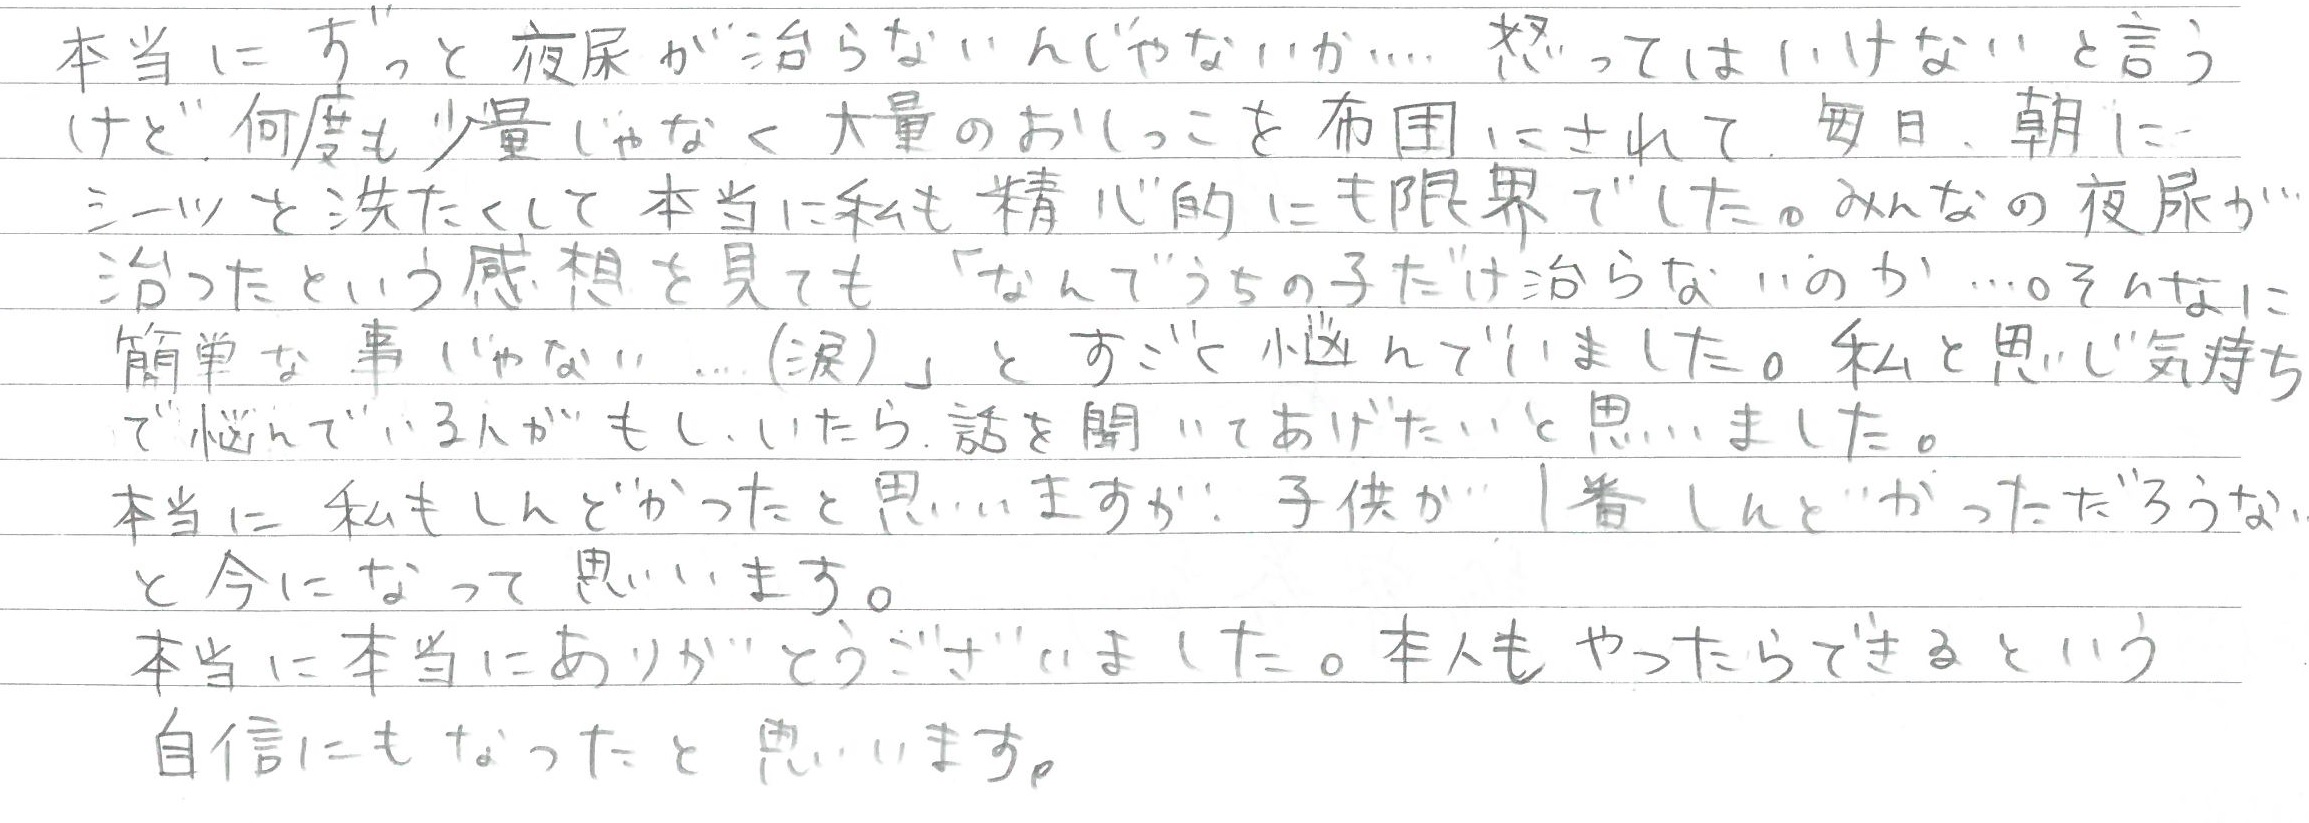 本当に ずっと 夜尿が治らないんじゃないか…. 怒ってはいけないと言う
けど、何度も少量じゃなく大量のおしっこを布団にされて、毎日、朝に
シーツを洗たくして本当に私も精心的にも限界でした。みんなの夜尿が
治ったという感想を見ても「なんでうちの子だけ治らないのか…。そんなに
簡単な事じゃない….(涙)」とすごく悩んでいました。私と思いじ気持ち
で悩んでいる人がもし、いたら、話を聞いてあげたいと思いました。
本当に私もしんどかったと思いいますが、子供が1番しんどかっただろうな‥
と今になって思いいます。
本当に本当にありがとうございました。本人もやったらできるという
自信にもなったと思いいます。